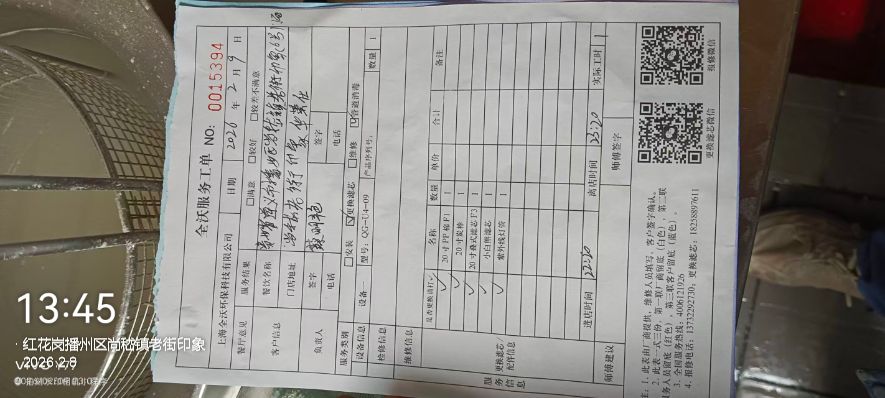 全沃服务工单 NO: 0015394
上海全沃环保科技有限公司 日期 2026 年 2 月 9 日
餐厅意见 服务结果 □满意 □较好 □较差不满意
客户信息 餐饮名称
门店地址
负责人 签字 签字
电话 电话
服务类别 □安装 ☑更换滤芯 □维修 ☑管道消毒
设备信息 设备 型号: QG-U4-09 产品序列号: 数量 1
检修信息
维修信息
服务信息 更换滤芯/配件信息 是否更换请打✓ 名称 数量 单价 合计 备注
✓ 20寸PP棉F1 1
✓ 20寸炭棒 1
✓ 20寸叠式滤芯F3 1
✓ 小白熊滤芯 1
紫外线灯管 1
进店时间 22:20 离店时间 23:20 实际工时 1
师傅建议 师傅签字
注: 1. 此表由厂商提供, 维修人员填写, 客户签字确认。
2. 此表一式三份, 第一联厂商留底(白色), 第二联
服务人员留底(红色), 第三联客户留底(蓝色)。
3. 全国服务热线: 4006121926
4. 报修电话: 13732292730; 更换滤芯: 18258897611
更换滤芯微信
报修微信
13:45
红花岗播州区尚嵇镇老街印象
2026.2.8